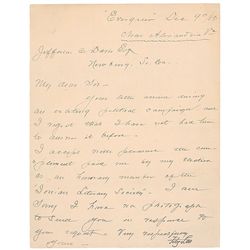 "Evergreen" Dec 9th
Near Alexandria Va
Jefferson C Davis Esq
Newberry, So. Ca.
My dear Sir -
Your letter arrived during
an exciting political campaign and
I regret that I have not had time
to answer it before -
I accept with pleasure the com-
pliment paid me by my election
as an honorary member of the
"Ionian Literary Society". I am
sorry I have no photograph
to send you in response to
your request. Very respectfully
yours -